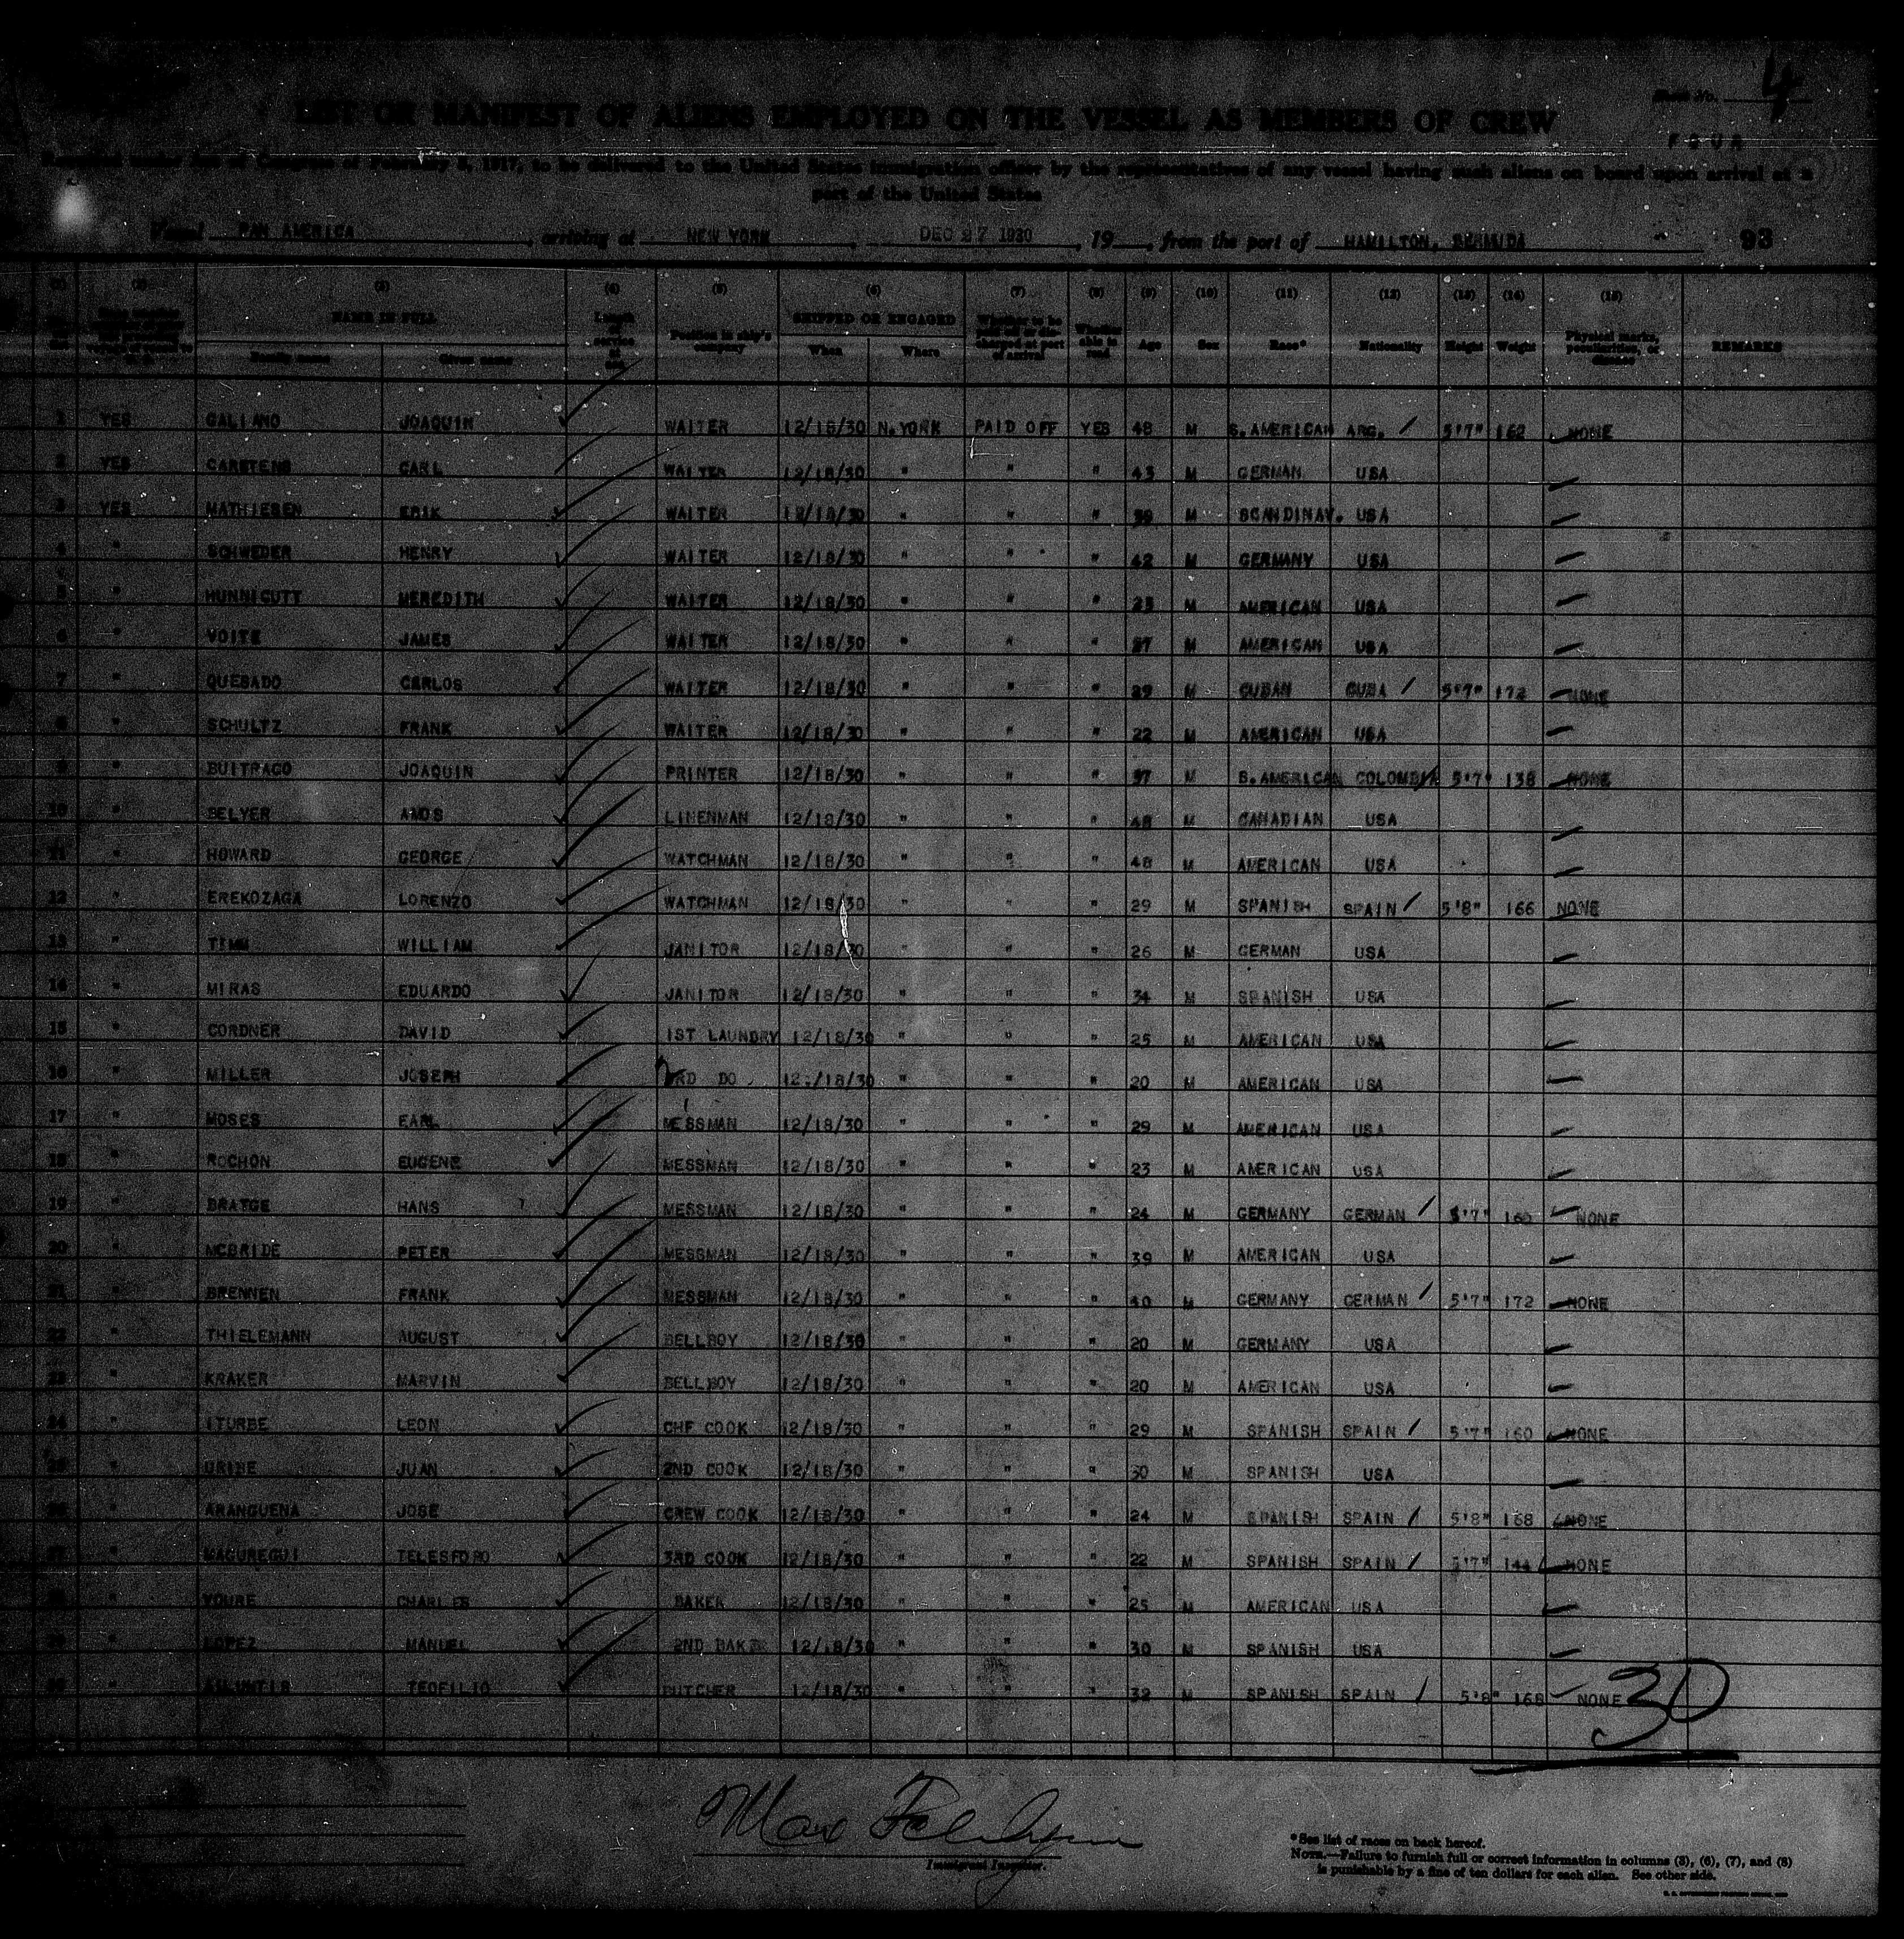 Sheet No. 4
FOUR
LIST OR MANIFEST OF ALIENS EMPLOYED ON THE VESSEL AS MEMBERS OF CREW
Required under Act of Congress of February 5, 1917, to be delivered to the United States immigration officer by the representatives of any vessel having such aliens on board upon arrival at a
port of the United States
Vessel PAN AMERICA, arriving at NEW YORK, DEC 27 1930, 19, from the port of HAMILTON, BERMUDA 93
(1) (2) (3) (4) (5) (6) (7) (8) (9) (10) (11) (12) (13) (14) (15)
NAME IN FULL Length of service at sea Position in ship's company SHIPPED OR ENGAGED Whether to be paid off or discharged at port of arrival Whether able to read Age Sex Race* Nationality Height Weight Physical marks, peculiarities, or disease REMARKS
Family name Given name When Where
1 YES GALIANO JOAQUIN WAITER 12/18/30 N.YORK PAID OFF YES 48 M S.AMERICAN ARG. / 5'7" 162 NONE
2 YES CARSTENS CARL WAITER 12/18/30 " " " 43 M GERMAN USA
3 YES MATHIESEN ERIK WAITER 12/18/30 " " " M SCANDINAV. USA
4 " SCHWEDER HENRY WAITER 12/18/30 " " " 42 M GERMANY USA
5 " HUNNICUTT MEREDITH WAITER 12/18/30 " " " 23 M AMERICAN USA
6 " VOITE JAMES WAITER 12/18/30 " " " 27 M AMERICAN USA
7 " QUESADO CARLOS WAITER 12/18/30 " " " 29 M CUBAN CUBA / 5'7" 172 NONE
8 " SCHULTZ FRANK WAITER 12/18/30 " " " 22 M AMERICAN USA
9 " BUITRAGO JOAQUIN PRINTER 12/18/30 " " " 37 M S.AMERICAN COLOMBIA 5'7" 138 NONE
10 " BELYER AMOS LINENMAN 12/18/30 " " " 48 M CANADIAN USA
11 " HOWARD GEORGE WATCHMAN 12/18/30 " " " 48 M AMERICAN USA
12 " EREKOZAGA LORENZO WATCHMAN 12/18/30 " " " 29 M SPANISH SPAIN / 5'8" 166 NONE
13 " TIMM WILLIAM JANITOR 12/18/30 " " " 26 M GERMAN USA
14 " MIRAS EDUARDO JANITOR 12/18/30 " " " 34 M SPANISH USA
15 " CORDNER DAVID 1ST LAUNDRY 12/18/30 " " " 25 M AMERICAN USA
16 " MILLER JOSEPH RD DO 12/18/30 " " " 20 M AMERICAN USA
17 " MOSES EARL MESSMAN 12/18/30 " " " 29 M AMERICAN USA
18 " ROCHON EUGENE MESSMAN 12/18/30 " " " 23 M AMERICAN USA
19 " BRATGE HANS MESSMAN 12/18/30 " " " 24 M GERMANY GERMAN / 5'7" 160 NONE
20 " MCBRIDE PETER MESSMAN 12/18/30 " " " 39 M AMERICAN USA
21 " BRENNEN FRANK MESSMAN 12/18/30 " " " 40 M GERMANY GERMAN / 5'7" 172 NONE
22 " THIELEMANN AUGUST BELLBOY 12/18/30 " " " 20 M GERMANY USA
23 " KRAKER MARVIN BELLBOY 12/18/30 " " " 20 M AMERICAN USA
24 " ITURBE LEON CHF COOK 12/18/30 " " " 29 M SPANISH SPAIN / 5'7" 160 NONE
25 " URIBE JUAN 2ND COOK 12/18/30 " " " 30 M SPANISH USA
26 " ARANGUENA JOSE CREW COOK 12/18/30 " " " 24 M SPANISH SPAIN / 5'8" 168 NONE
27 " MAGUREGUI TELESFORO 3RD COOK 12/18/30 " " " 22 M SPANISH SPAIN / 5'7" 144 NONE
28 " YOURE CHARLES BAKER 12/18/30 " " " 25 M AMERICAN USA
29 " LOPEZ MANUEL 2ND BAKER 12/18/30 " " " 30 M SPANISH USA
30 " TEOFILIO BUTCHER 12/18/30 " " " 32 M SPANISH SPAIN / 5'8" 168 NONE
30
Max
Immigrant Inspector.
*See list of races on back hereof.
NOTE.—Failure to furnish full or correct information in columns (3), (6), (7), and (8)
is punishable by a fine of ten dollars for each alien. See other side.